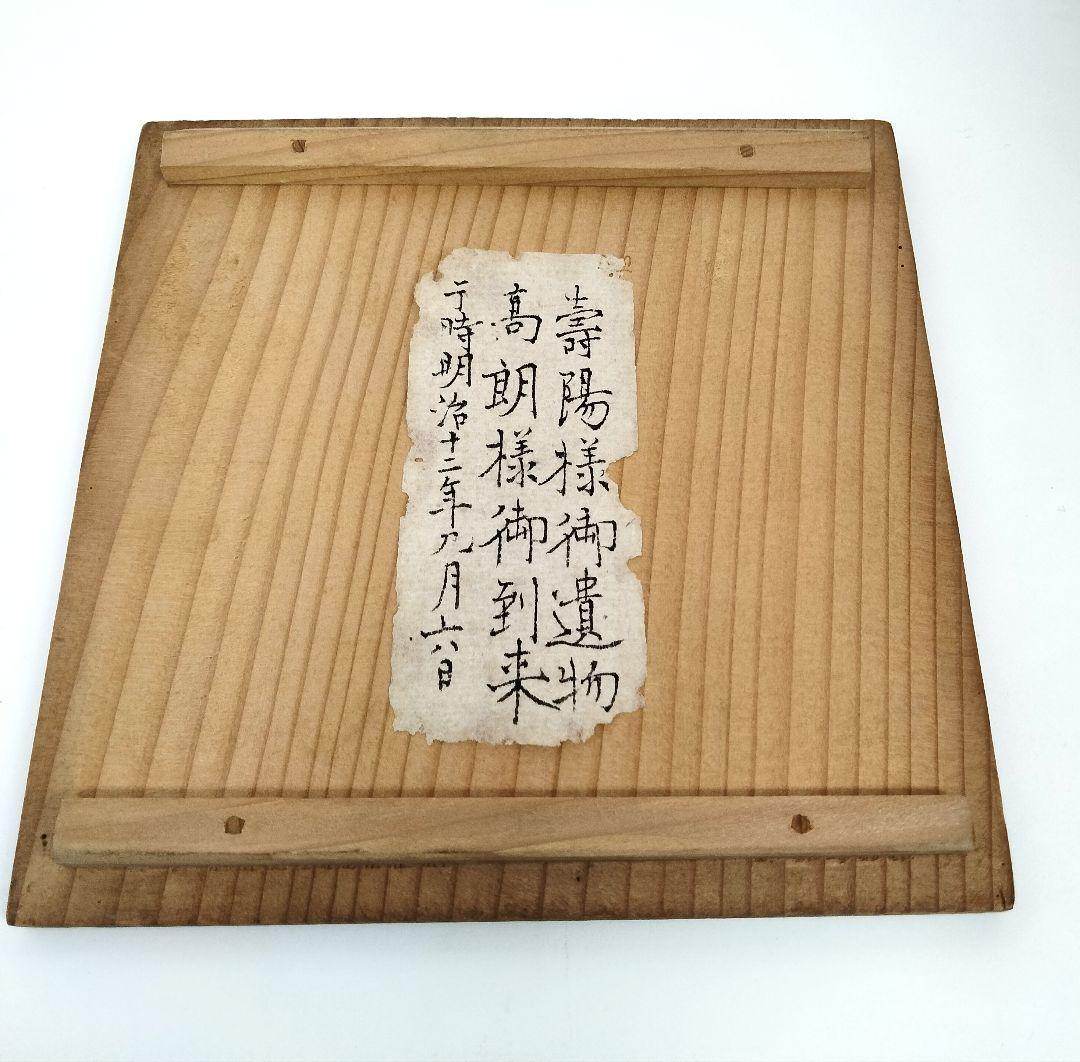 壽陽様御遺物
高朗様御到来
于時明治十二年九月六八日